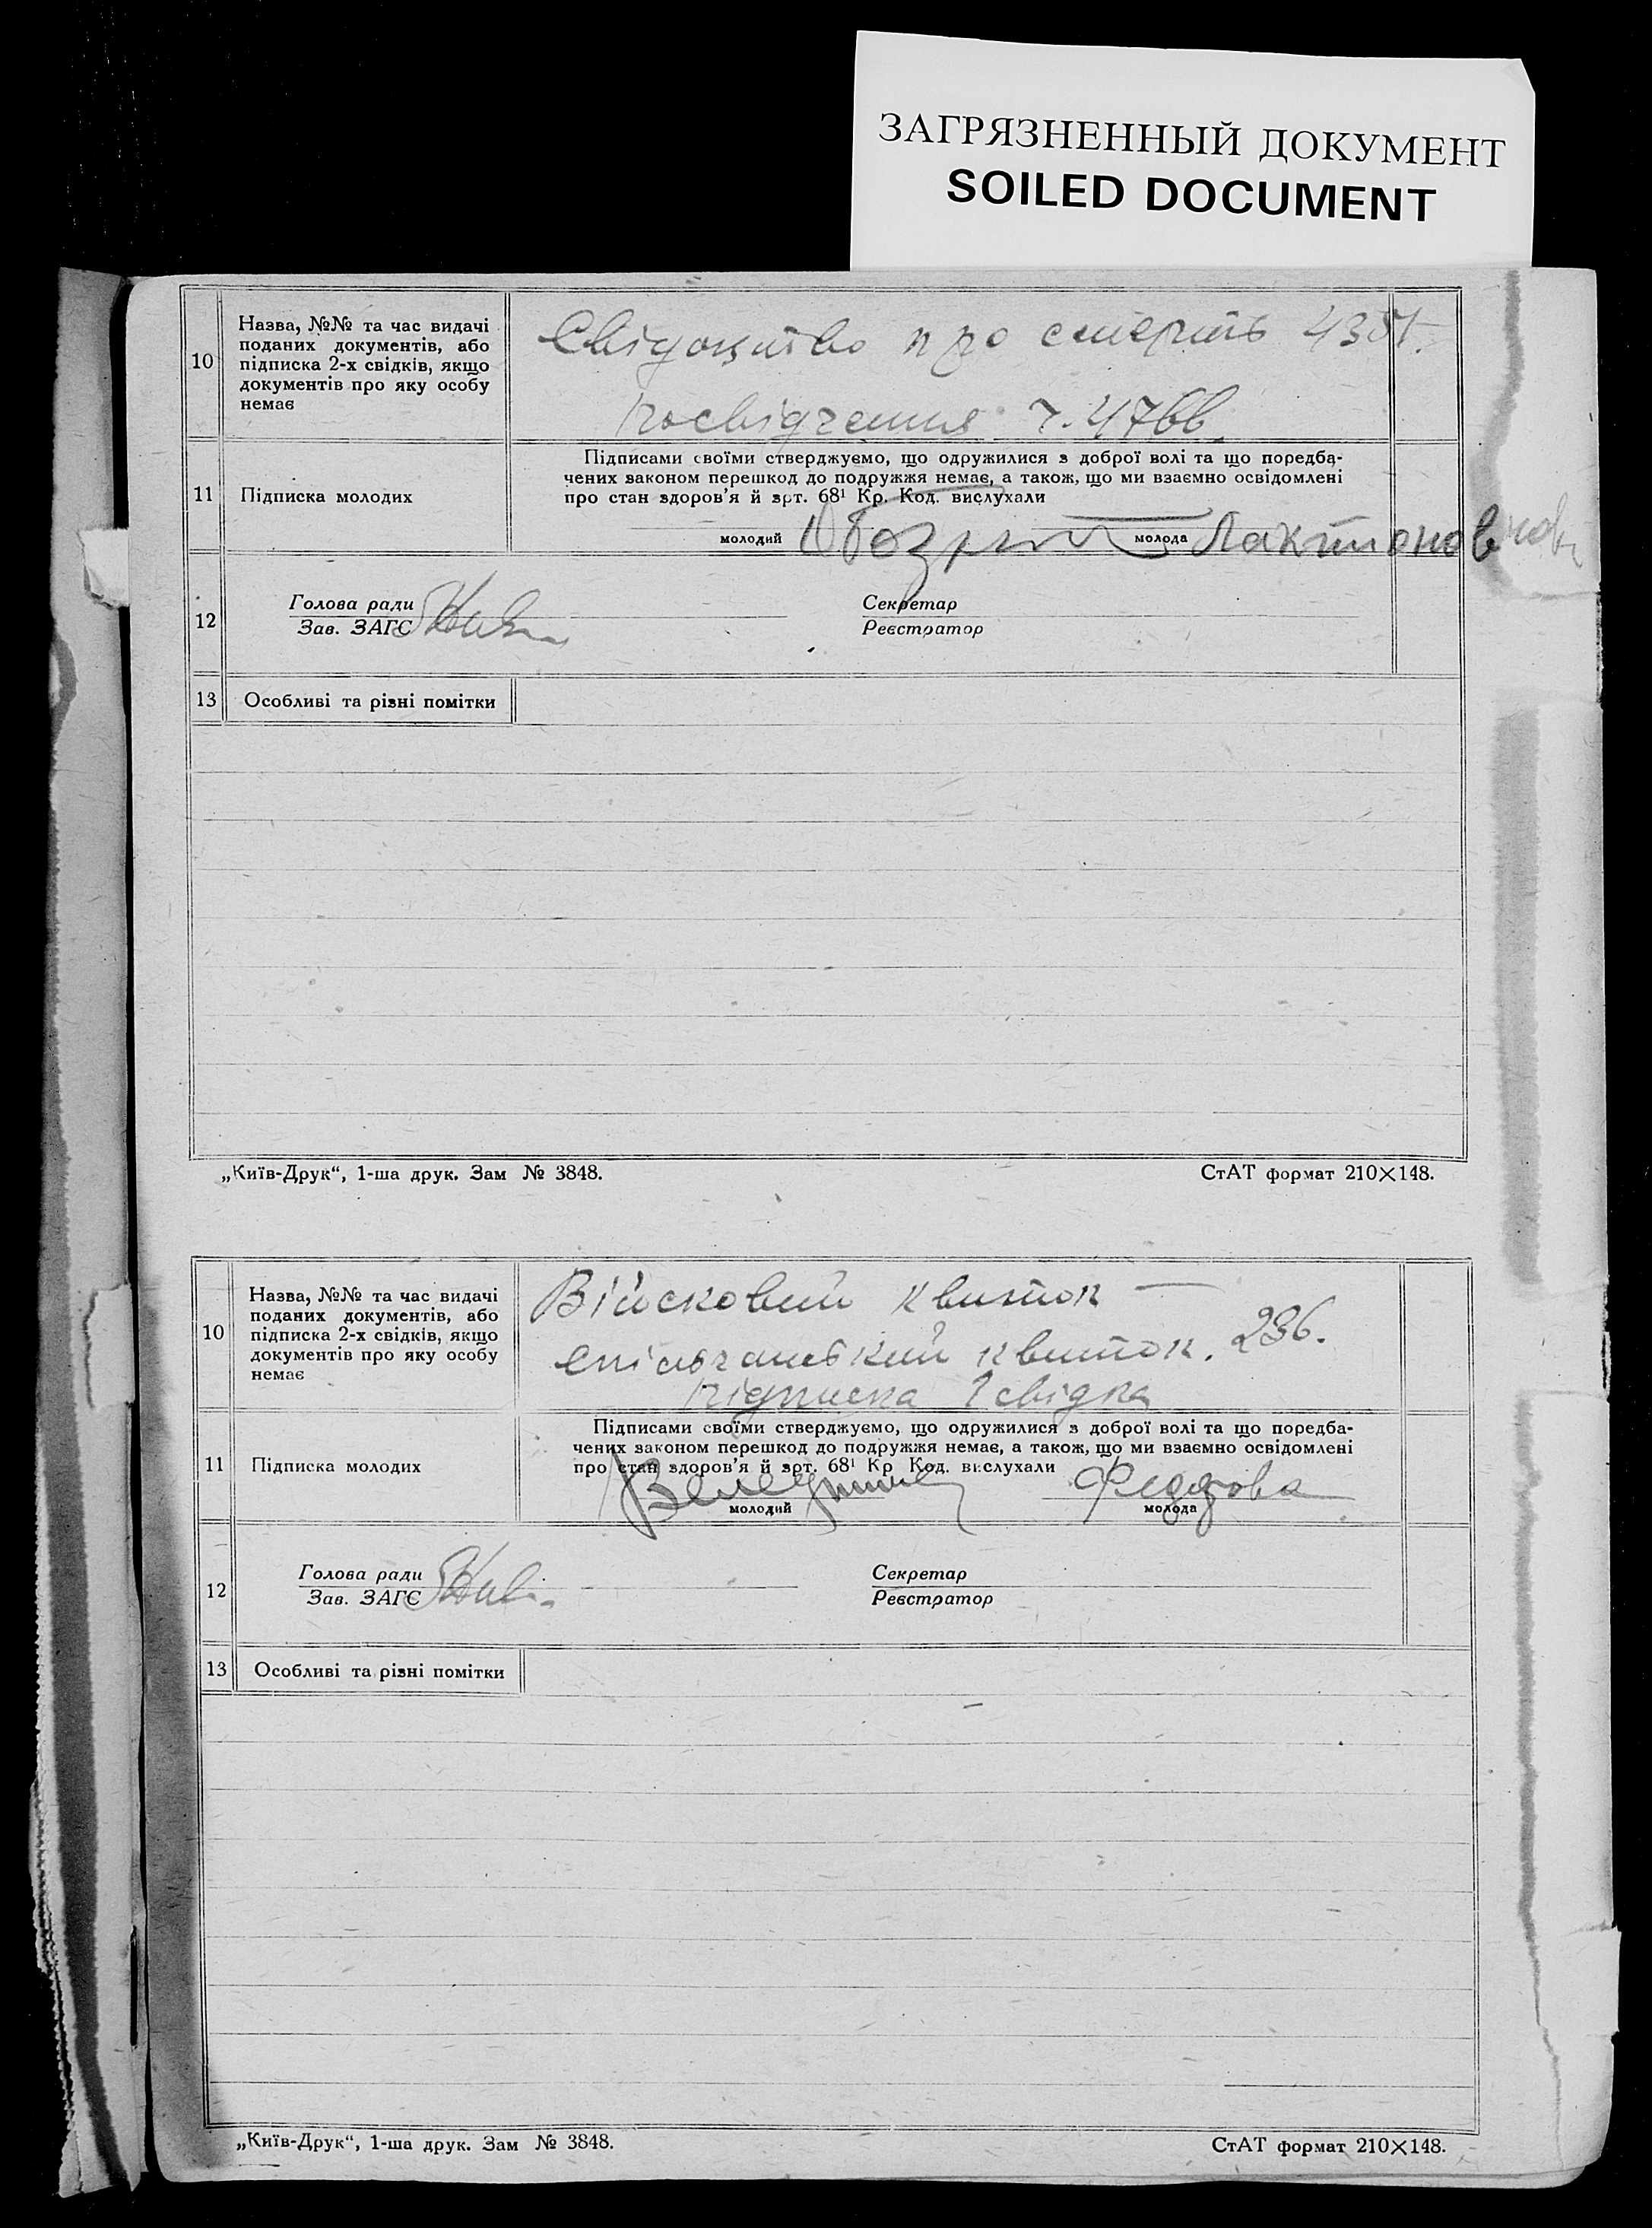 ЗАГРЯЗНЕННЫЙ ДОКУМЕНТ
SOILED DOCUMENT
10
Назва, №№ та час видачі
поданих документів, або
підписка 2-х свідків, якщо
документів про яку особу
немає
Свідоцтво про смерть
посвідчення ч.
11
Підписка молодих
Підписами своїми стверджуємо, що одружилися з доброї волі та що поредба-
чених законом перешкод до подружжя немає, а також, що ми взаємно освідомлені
про стан здоров'я й арт. 68¹ Кр. Код. вислухали
молодий
молода
12
Голова ради
Зав. ЗАГС
Секретар
Реєстратор
13
Особливі та різні помітки
„Київ-Друк“, 1-ша друк. Зам № 3848.
СтАТ формат 210×148.
10
Назва, №№ та час видачі
поданих документів, або
підписка 2-х свідків, якщо
документів про яку особу
немає
Війсковий квиток —
спілчанський квиток. 236.
підписка свідка
11
Підписка молодих
Підписами своїми стверджуємо, що одружилися з доброї волі та що поредба-
чених законом перешкод до подружжя немає, а також, що ми взаємно освідомлені
про стан здоров'я й арт. 68¹ Кр Код. вислухали
Федорова
молодий
молода
12
Голова ради
Зав. ЗАГС
Секретар
Реєстратор
13
Особливі та різні помітки
„Київ-Друк“, 1-ша друк. Зам № 3848.
СтАТ формат 210×148.